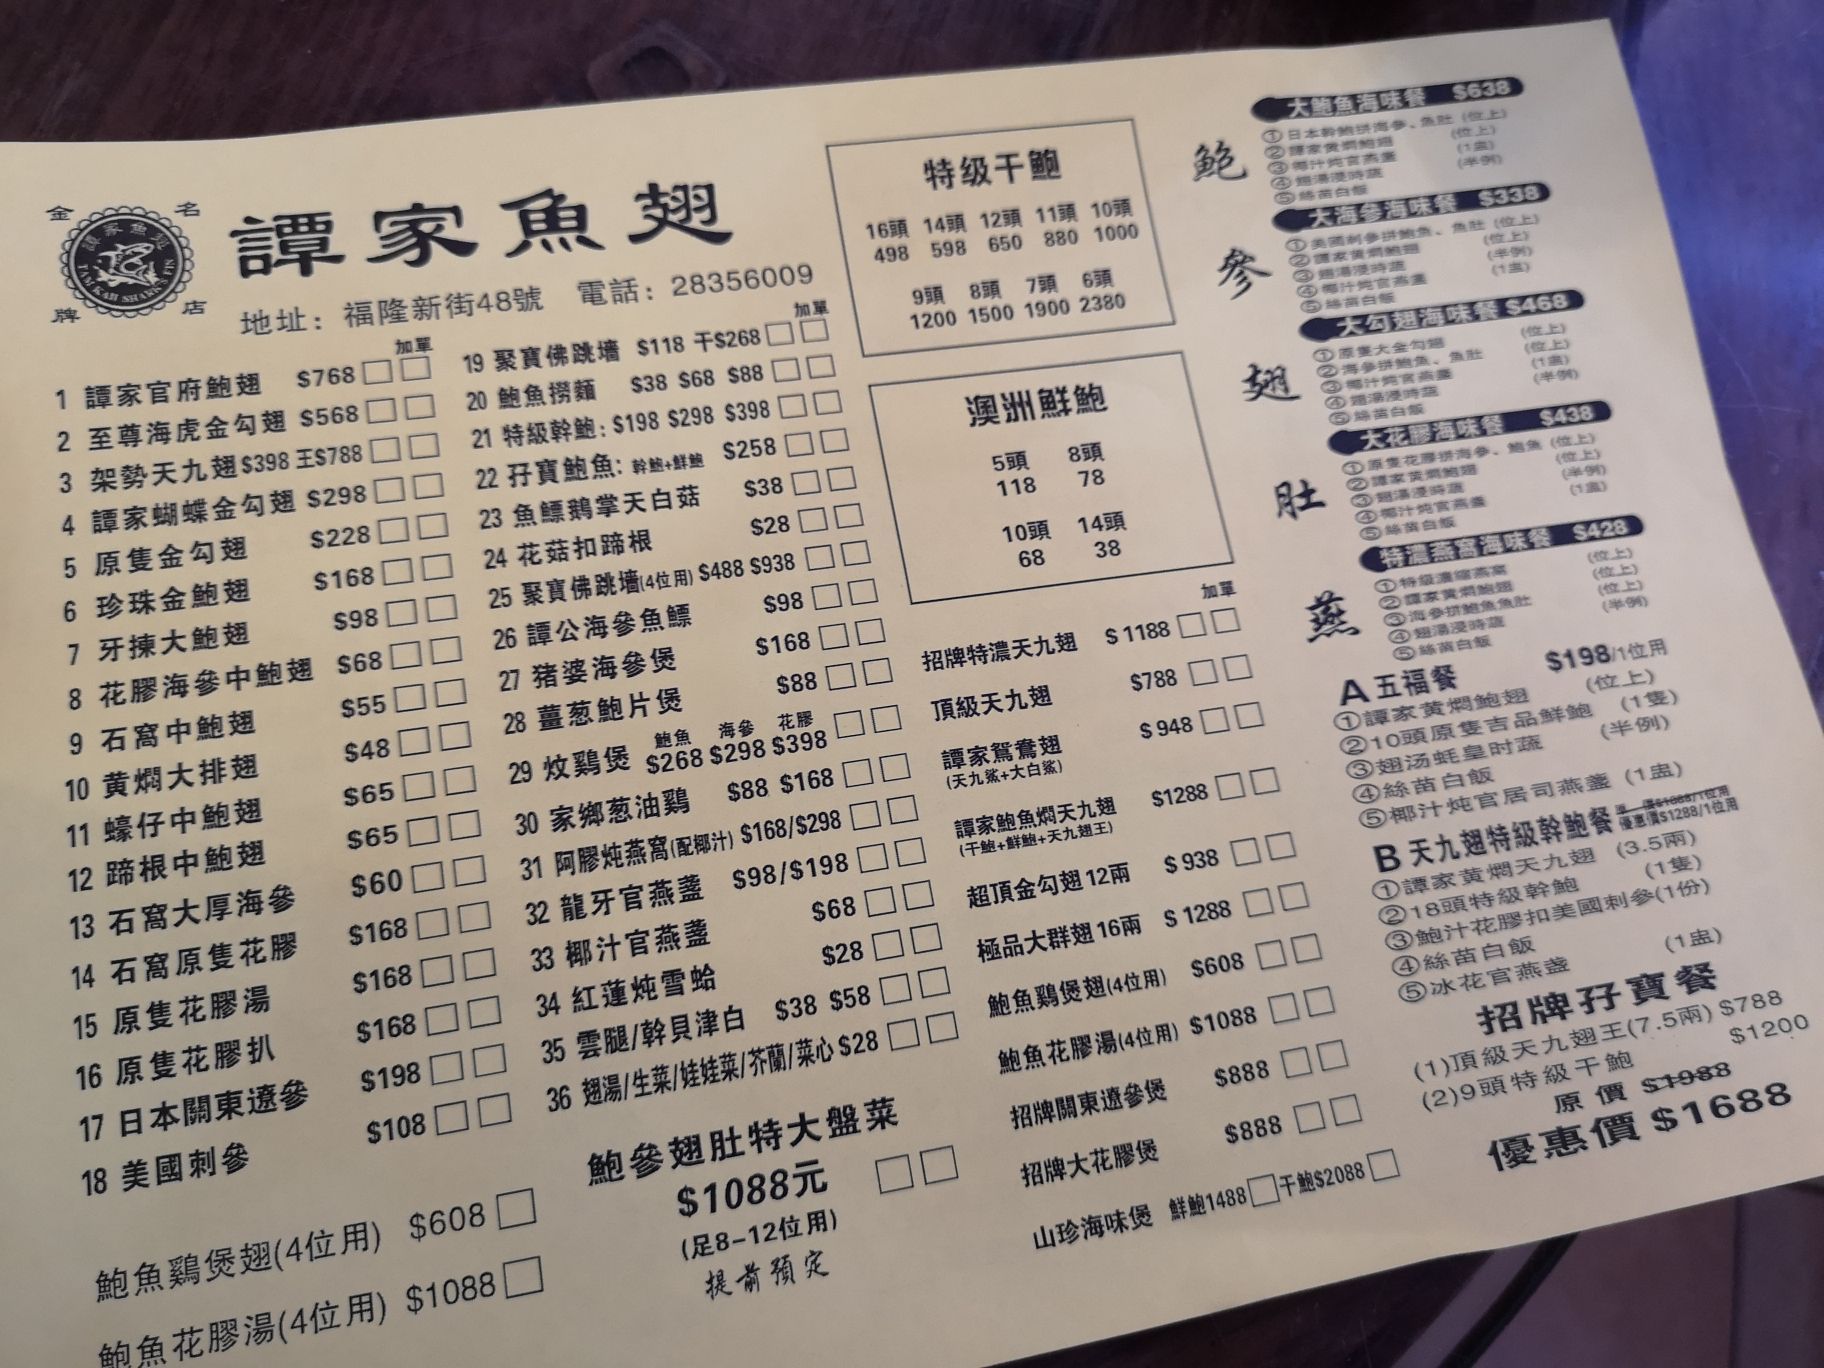 金 名
牌 店
譚家魚翅
TAM KAH SHARK'S FIN
譚家魚翅
地址：福隆新街48號 電話：28356009
加單
1 譚家官府鮑翅 $768
2 至尊海虎金勾翅 $568
3 架勢天九翅$398 王$788
4 譚家蝴蝶金勾翅 $298
5 原隻金勾翅 $228
6 珍珠金鮑翅 $168
7 牙揀大鮑翅 $98
8 花膠海參中鮑翅 $68
9 石窩中鮑翅 $55
10 黄燜大排翅 $48
11 蠔仔中鮑翅 $65
12 蹄根中鮑翅 $65
13 石窩大厚海參 $60
14 石窩原隻花膠 $168
15 原隻花膠湯 $168
16 原隻花膠扒 $168
17 日本關東遼參 $198
18 美國刺參 $108
鮑魚鷄煲翅(4位用) $608
鮑魚花膠湯(4位用) $1088
加單
19 聚寶佛跳墻 $118 干$268
20 鮑魚撈麵 $38 $68 $88
21 特級幹鮑：$198 $298 $398
22 孖寶鮑魚：幹鮑+鮮鮑 $258
23 魚鰾鵝掌天白菇 $38
24 花菇扣蹄根 $28
25 聚寶佛跳墻(4位用) $488 $938
26 譚公海參魚鰾 $98
27 猪婆海參煲 $168
28 薑葱鮑片煲 $88
鮑魚 海參 花膠
29 炆鷄煲 $268 $298 $398
30 家鄉葱油鷄 $88 $168
31 阿膠炖燕窩(配椰汁) $168/$298
32 龍牙官燕盞 $98/$198
33 椰汁官燕盞 $68
34 紅蓮炖雪蛤 $28
35 雲腿/幹貝津白 $38 $58
36 翅湯/生菜/娃娃菜/芥蘭/菜心 $28
鮑參翅肚特大盤菜
$1088元
(足8-12位用)
提前預定
特级干鮑
16頭 14頭 12頭 11頭 10頭
498 598 650 880 1000
9頭 8頭 7頭 6頭
1200 1500 1900 2380
澳洲鮮鮑
5頭 8頭
118 78
10頭 14頭
68 38
加單
招牌特濃天九翅 $1188
頂級天九翅 $788
譚家鴛鴦翅 $948
(天九鯊+大白鯊)
譚家鮑魚燜天九翅 $1288
(干鮑+鮮鮑+天九翅王)
超頂金勾翅12兩 $938
極品大群翅16兩 $1288
鮑魚鷄煲翅(4位用) $608
鮑魚花膠湯(4位用) $1088
招牌關東遼參煲 $888
招牌大花膠煲 $888
山珍海味煲 鮮鮑1488 干鮑$2088
鮑
參
翅
肚
燕
大鮑魚海味餐 $638
①日本幹鮑拼海參、魚肚 (位上)
②譚家黄燜鮑翅 (位上)
③椰汁炖官燕盞 (1盅)
④翅湯浸時蔬 (半例)
⑤絲苗白飯
大海參海味餐 $338
①美國刺參拼鮑魚、魚肚 (位上)
②譚家黄燜鮑翅 (位上)
③翅湯浸時蔬 (半例)
④椰汁炖官燕盞 (1盅)
⑤絲苗白飯
大勾翅海味餐 $468
①原隻大金勾翅 (位上)
②海參拼鮑魚、魚肚 (位上)
③椰汁炖官燕盞 (1盅)
④翅湯浸時蔬 (半例)
⑤絲苗白飯
大花膠海味餐 $438
①原隻花膠拼海參、鮑魚 (位上)
②譚家黄燜鮑翅 (位上)
③翅湯浸時蔬 (半例)
④椰汁炖官燕盞 (1盅)
⑤絲苗白飯
特濃燕窩海味餐 $428
①特級濃縮燕窩 (位上)
②譚家黄燜鮑翅 (位上)
③海參拼鮑魚魚肚 (位上)
④翅湯浸時蔬 (半例)
⑤絲苗白飯
A 五福餐 $198/1位用
①譚家黄燜鮑翅 (位上)
②10頭原隻吉品鮮鮑 (1隻)
③翅汤蚝皇时蔬 (半例)
④絲苗白飯
⑤椰汁炖官居司燕盞 (1盅)
B 天九翅特級幹鮑餐 原 價$1688/1位用 優惠價$1288/1位用
①譚家黄燜天九翅 (3.5兩)
②18頭特級幹鮑 (1隻)
③鮑汁花膠扣美國刺參(1份)
④絲苗白飯
⑤冰花官燕盏 (1盅)
招牌孖寶餐
(1)頂級天九翅王(7.5兩) $788
(2)9頭特級干鮑 $1200
原 價 $1988
優惠價 $1688